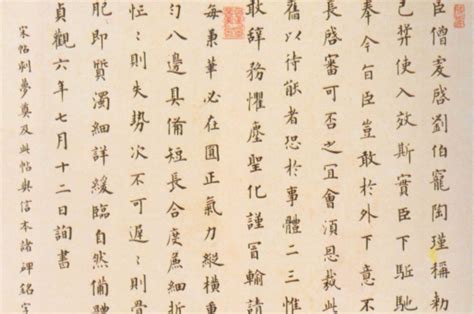 臣僧虔啓劉伯寵陶瑾稱勅
已弊使入效斯實臣下駈馳
奉令旨臣豈敢於外下意不
長啓審可否之宜會須恩裁此
舊以待能者恐於事體二三惟
敢辞務懼塵聖化謹冐輸請
每秉筆必在圓正氣力縱橫重
勻八邊具備短長合度麁細折
忙〻則失勢次不可遲〻則骨
肥即質濁細詳緩臨自然備體
貞觀六年七月十二日詢書
宋帖刻夢奠及此帖與信本諸碑銘字